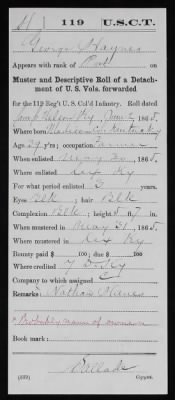 H | 119 | U.S.C.T.
George Haynes
Appears with rank of Pvt on
Muster and Descriptive Roll of a Detach-
ment of U. S. Vols. forwarded
for the 119 Reg't U. S. Col'd Infantry. Roll dated
Camp Nelson Ky, June 2, 1865.
Where born Madison Co. Kentucky
Age 29 y'rs; occupation Farmer
When enlisted May 20, 1865.
Where enlisted Lex Ky
For what period enlisted 3 years.
Eyes Blk; hair Blk
Complexion Blk; height 5 ft. 7 in.
When mustered in May 21, 1865.
Where mustered in Lex Ky
Bounty paid $ 100; due $ 100
Where credited 7 D. Ky
Company to which assigned C
Remarks: Nathan Hanes
*Probably name of owner
Book mark:
Ballade
(339) Copyist.